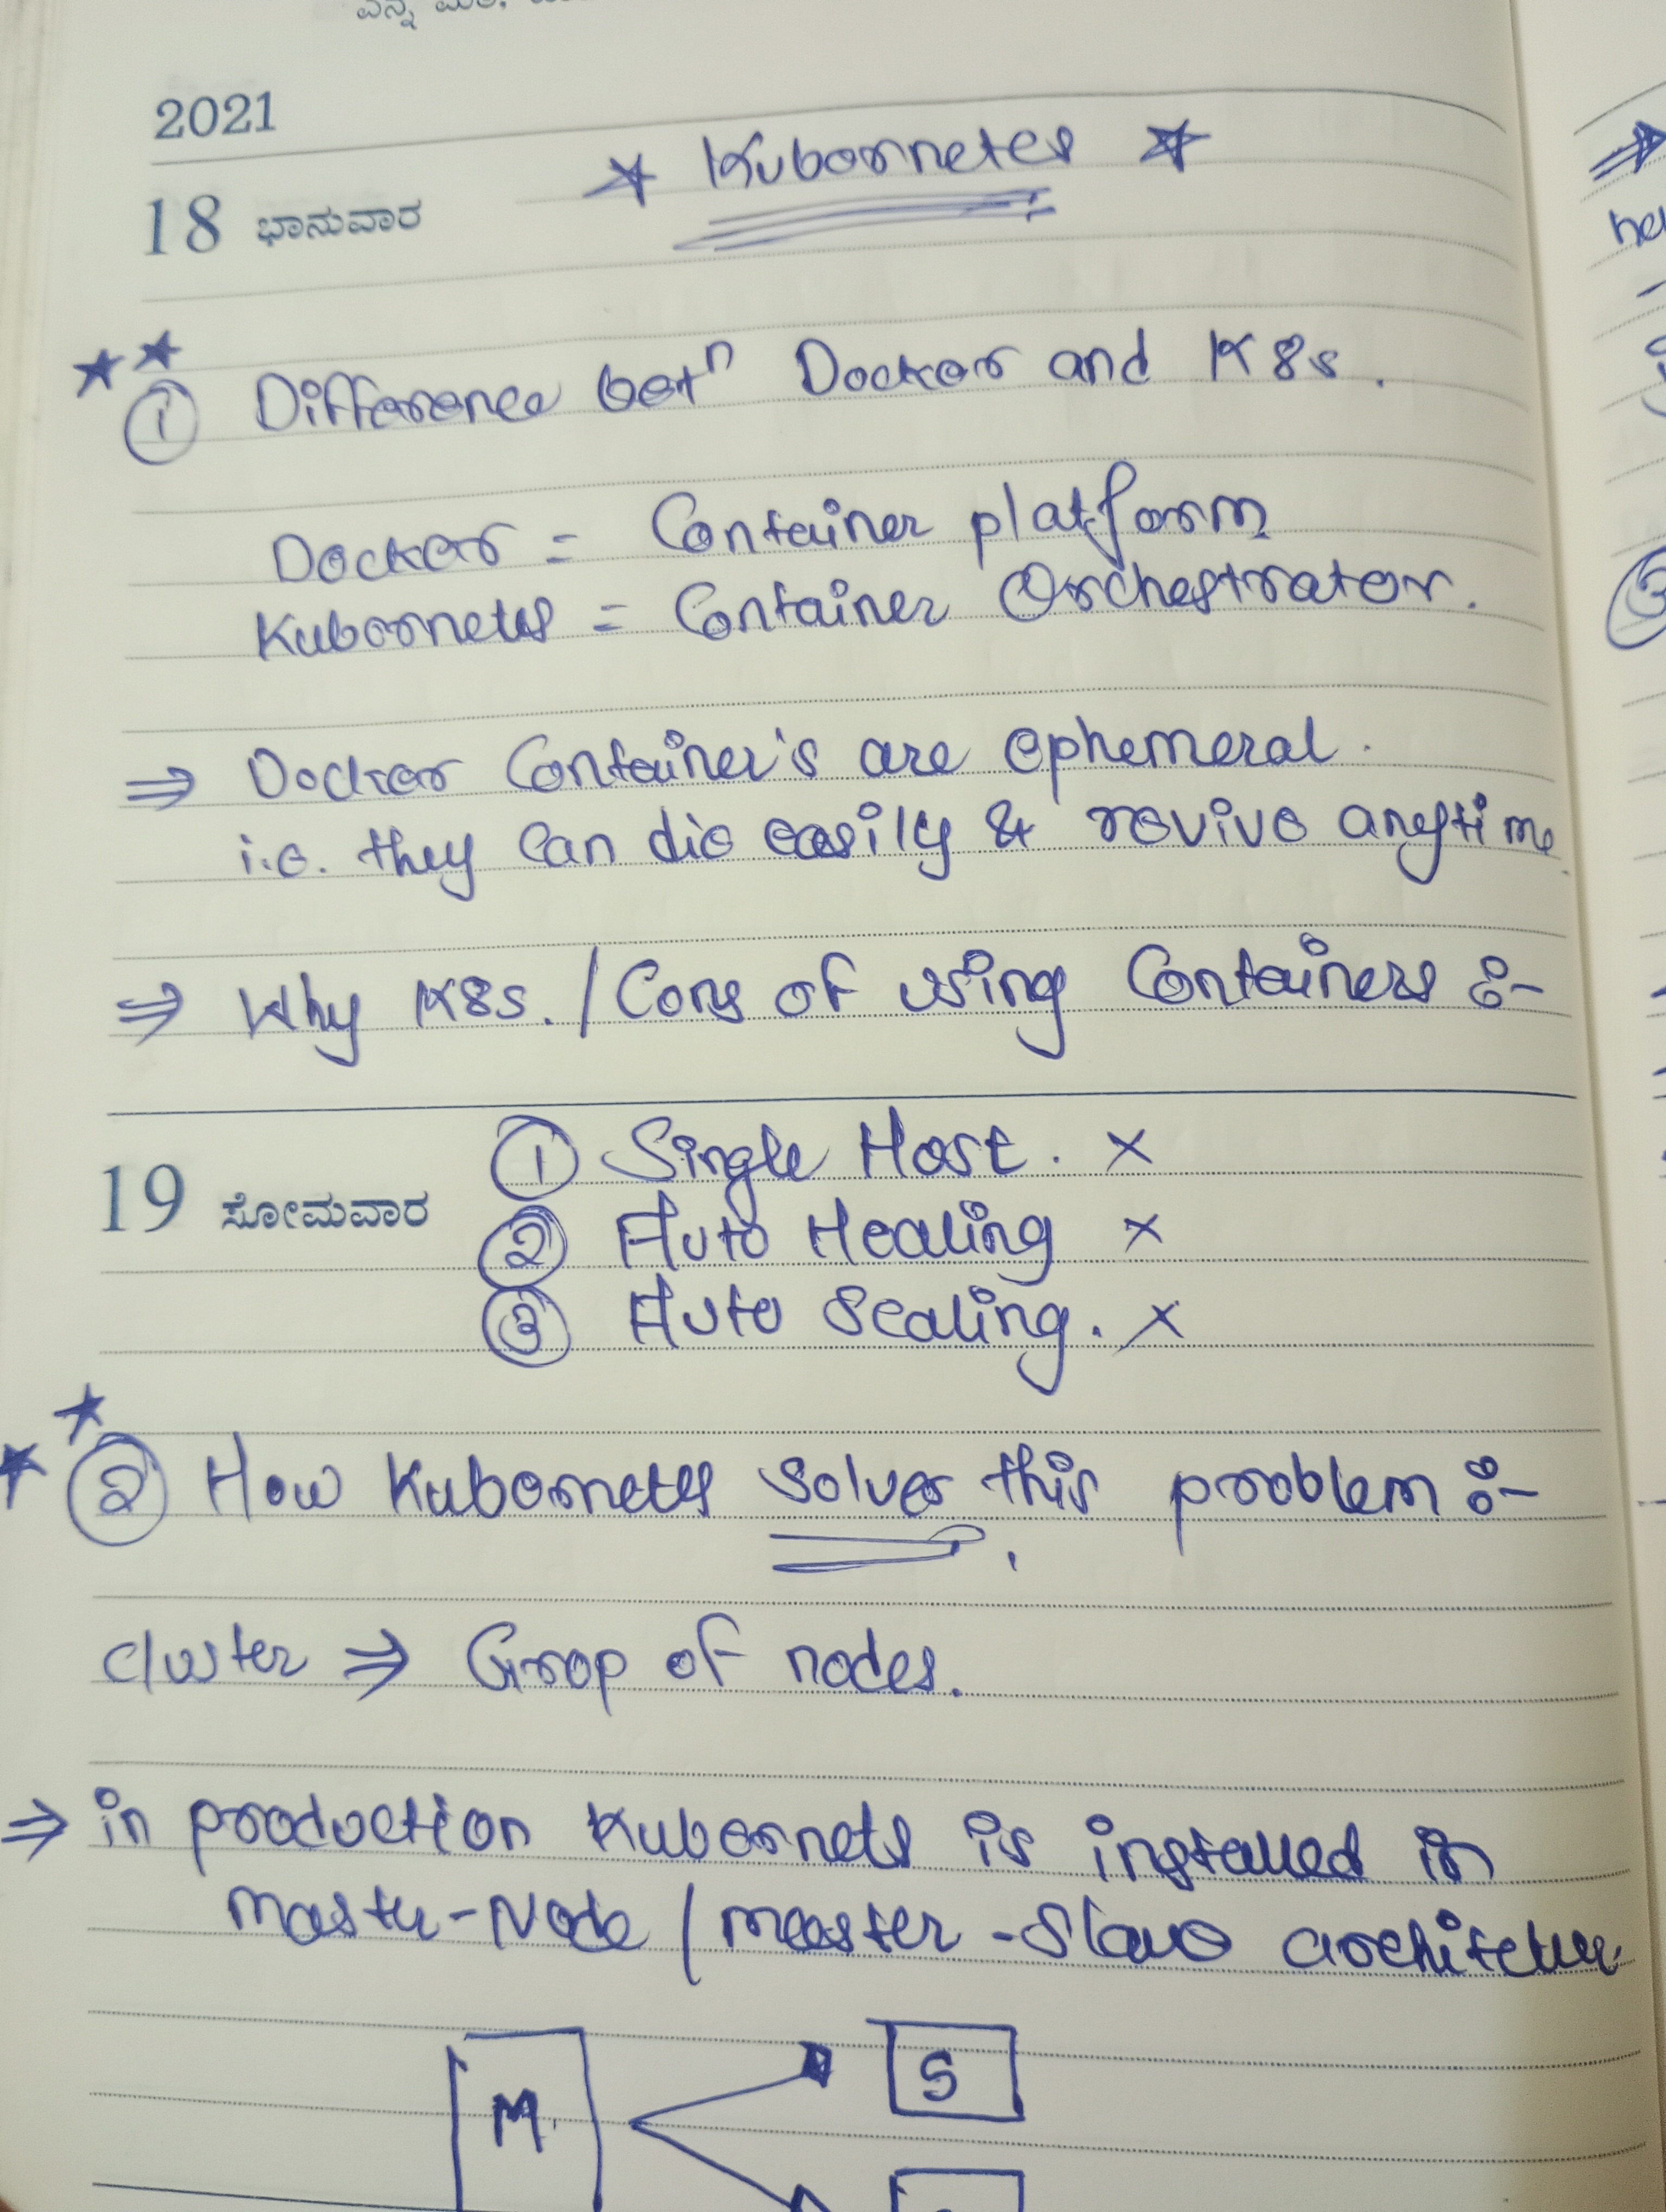 2021
18 ಭಾನುವಾರ
★ Kubernetes ★
★★
① Difference betⁿ Docker and K8s.
Docker = Container platform
Kubernetes = Container Orchestrator.
⇒ Docker Container's are ephemeral.
i.e. they can die easily & revive anytime.
⇒ Why K8s. / Cons of using Containers :-
19 ಸೋಮವಾರ
① Single Host. ×
② Auto Healing ×
③ Auto Scaling. ×
★★
② How Kubernetes solves this problem :-
cluster ⇒ Grop of nodes.
⇒ in production Kubernets is installed in
Master-Node / master-Slave architetur.
M.
S